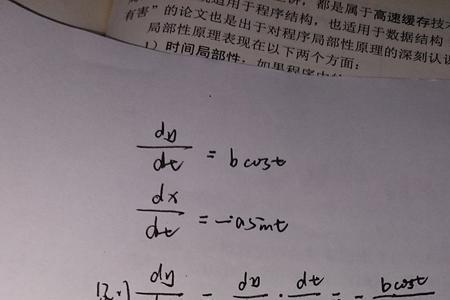 适用于程序结构，也适用于数据结构
都是属于高速缓存技术
有害”的论文也是出于对程序局部性原理的深刻认识
局部性原理表现在以下两个方面：
1）时间局部性，如果程序中的
dy/dt = b cost
dx/dt = -a sint
则 dy/ = dy/ · dt/ = - b cost